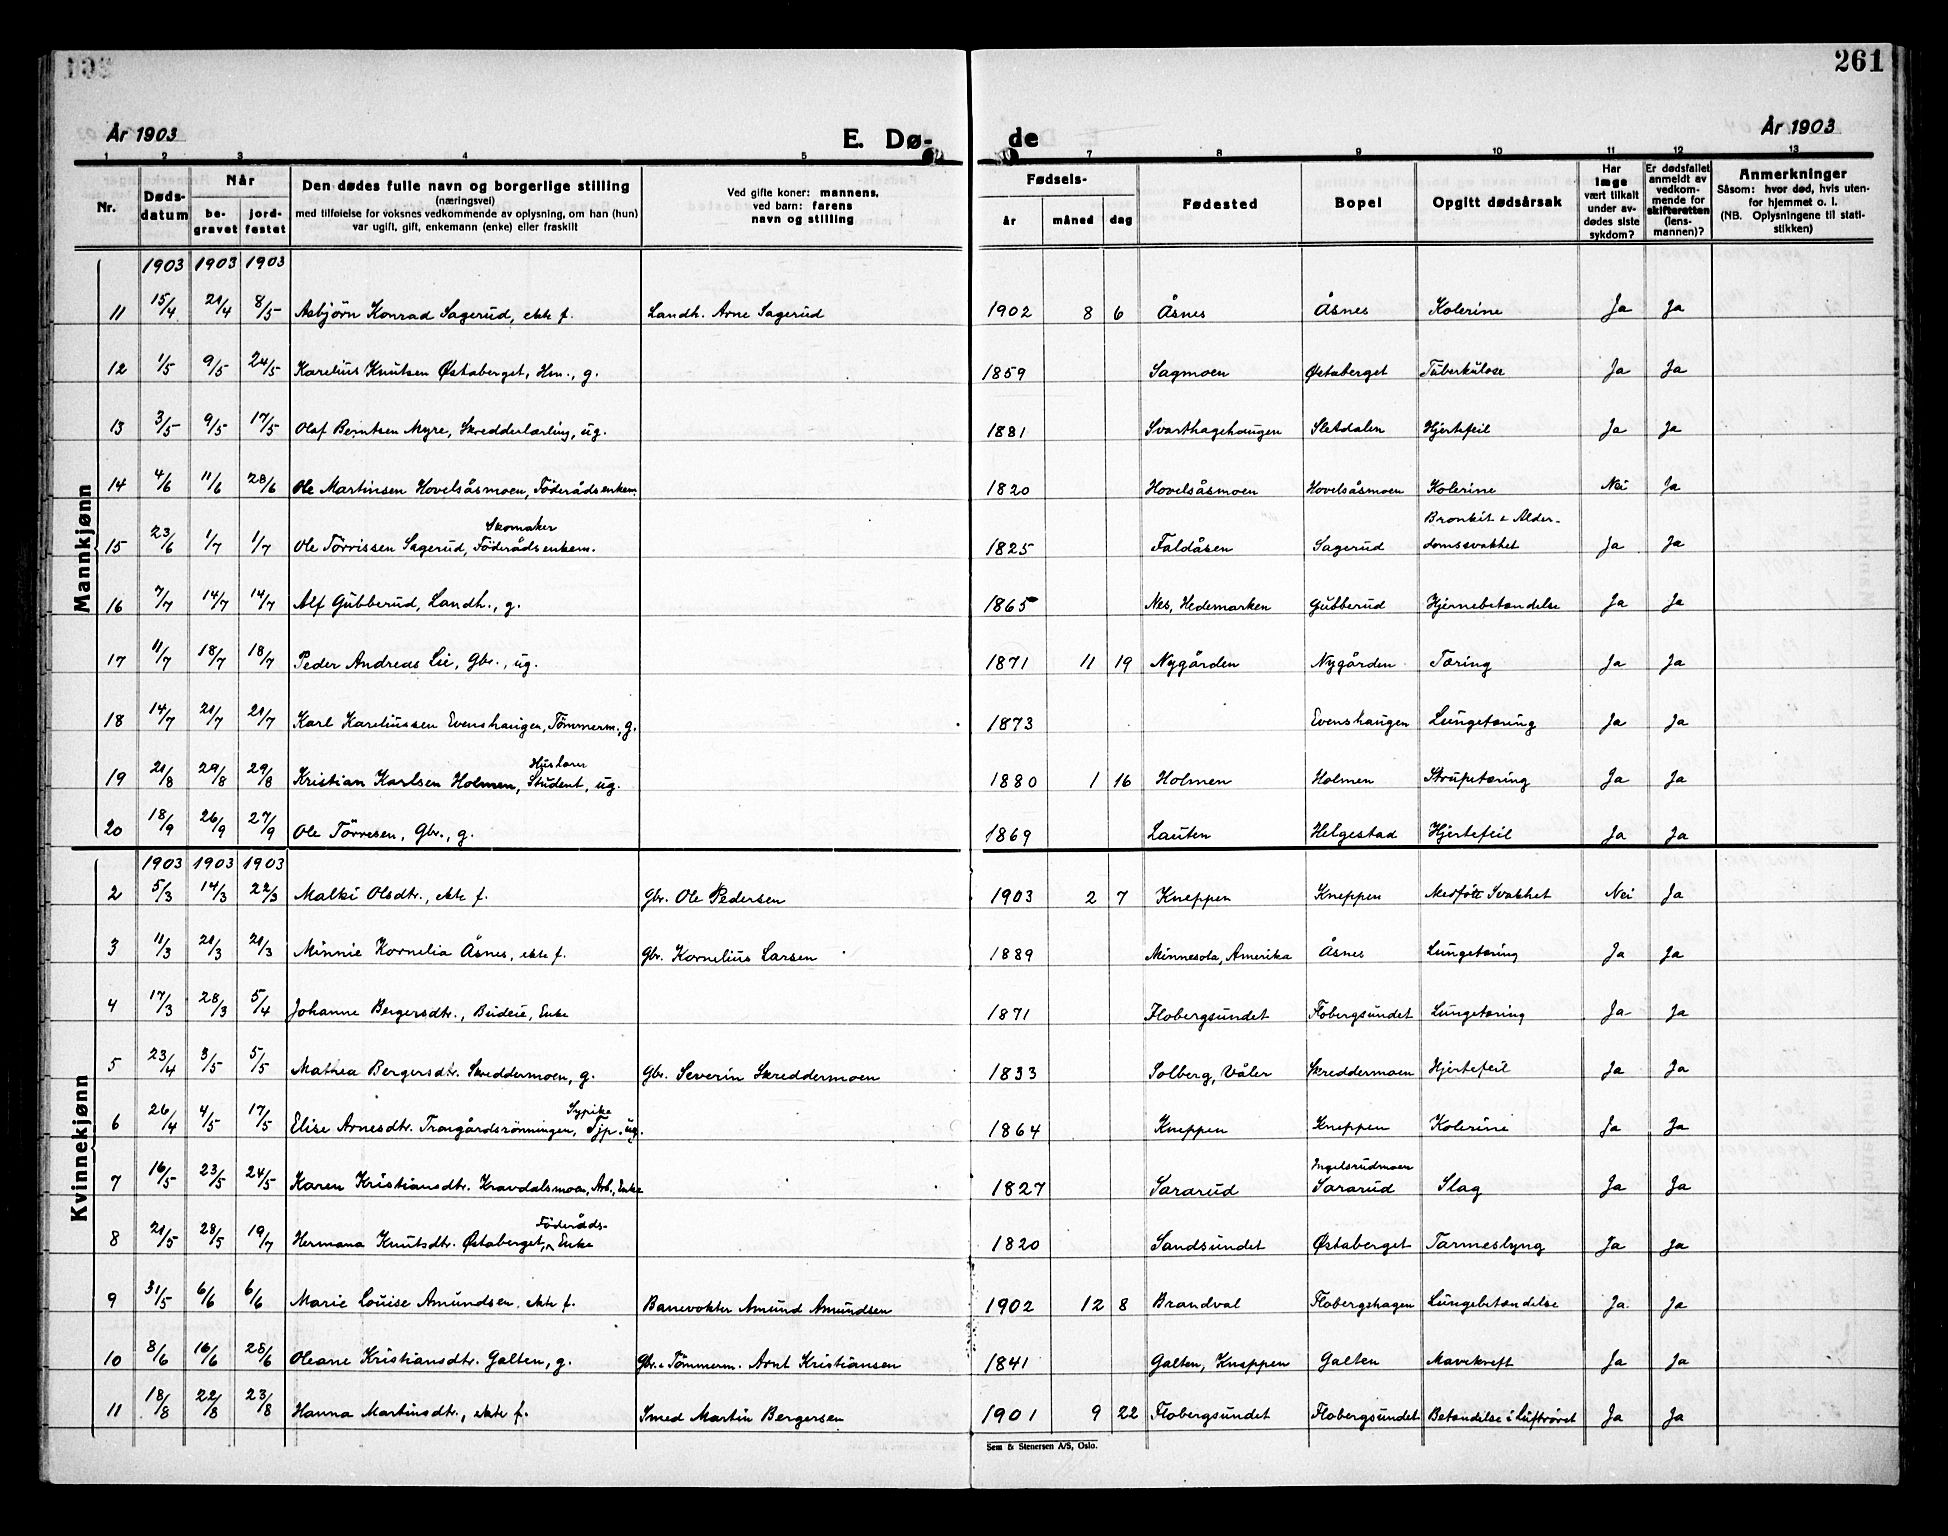 261
År 1903 E. Dø- de År 1903
1 2 3 4 5 7 8 9 10 11 12 13
Nr. Døds-datum Når be-gravet jord-festet Den dødes fulle navn og borgerlige stilling (næringsvei) med tilføielse for voksnes vedkommende av oplysning, om han (hun) var ugift, gift, enkemann (enke) eller fraskilt Ved gifte koner: mannens, ved barn: farens navn og stilling Fødsels- år måned dag Fødested Bopel Opgitt dødsårsak Har læge vært tilkalt under av-dødes siste sykdom? Er dødsfallet anmeldt av vedkom-mende for skifteretten (lens-mannen)? Anmerkninger Såsom: hvor død, hvis uten-for hjemmet o. l. (NB. Oplysningene til stati-stikken)
Mannkjønn
1903 1903 1903
11 15/4 21/4 8/5 Asbjörn Konrad Sagerud, ekte f. Landh. Arne Sagerud 1902 8 6 Åsnes Åsnes Kolerine Ja Ja
12 1/5 9/5 24/5 Karelius Knutsen Østaberget, Hm., g. 1859 Sagmoen Østaberget Tuberkulose Ja Ja
13 3/5 9/5 17/5 Olaf Berntsen Myre, Skredderlærling, ug. 1881 Svarthagehaugen Sletdalen Hjertefeil Ja Ja
14 4/6 11/6 28/6 Ole Martinsen Hovelsåsmoen, Föderådsenkem. 1820 Hovelsåsmoen Hovelsåsmoen Kolerine Nei Ja
Skomaker Bronkit & Alder-
15 23/6 1/7 1/7 Ole Törrissen Sagerud, Föderådsenkem. 1825 Faldåsen Sagerud domssvakhet Ja Ja
16 7/7 14/7 14/7 Alf Gubberud, Landh., g. 1865 Nes, Hedemarken Gubberud Hjernebetendelse Ja Ja
17 11/7 18/7 18/7 Peder Andreas Lie, Gbr., ug. 1871 11 19 Nygården Nygården Tæring Ja Ja
18 14/7 21/7 21/7 Karl Kareliussen Evenshaugen, Tömmerm., g. 1873 Evenshaugen Lungetæring Ja Ja
Huslærer
19 21/8 29/8 29/8 Kristian Karlsen Holmen, Student, ug. 1880 1 16 Holmen Holmen Strupetæring Ja Ja
20 18/9 26/9 27/9 Ole Törresen, Gbr., g. 1869 Lauten Helgestad Hjertefeil Ja Ja
Kvinnekjønn
1903 1903 1903
2 5/3 14/3 22/3 Malki Olsdtr., ekte f. Gbr. Ole Pedersen 1903 2 7 Kneppen Kneppen Medfött Svakhet Nei Ja
3 11/3 21/3 21/3 Minnie Kornelia Åsnes, ekte f. Gbr. Kornelius Larsen 1889 Minnesota, Amerika Åsnes Lungetæring Ja Ja
4 17/3 28/3 5/4 Johanne Bergersdtr., Budeie, Enke 1871 Flobergsundet Flobergsundet Lungetæring Ja Ja
5 23/4 3/5 5/5 Mathea Bergersdtr. Skreddermoen, g. Gbr. Severin Skreddermoen 1833 Solberg, Våler Skreddermoen Hjertefeil Ja Ja
Sypike
6 26/4 4/5 17/5 Elise Arnesdtr. Trangårdsrönningen, Tjp. ug. 1864 Kneppen Kneppen Kolerine Ja Ja
Ingelsrudmoen
7 16/5 23/5 24/5 Karen Kristiansdtr. Kravdalsmoen, Arb., Enke 1827 Sararud Sararud Slag Ja Ja
Föderåds-
8 21/5 28/5 19/7 Hermana Knutsdtr. Østaberget, Enke 1820 Sandsundet Østaberget Tarmeslyng Ja Ja
9 31/5 6/6 6/6 Marie Louise Amundsen, ekte f. Banevokter Amund Amundsen 1902 12 8 Brandval Flobergshagen Lungebetendelse Ja Ja
10 8/6 16/6 28/6 Oleane Kristiansdtr. Galten, g. Gbr. & Tömmerm. Arnt Kristiansen 1841 Galten, Kneppen Galten Mavekreft Ja Ja
11 18/8 22/8 23/8 Hanna Martinsdtr., ekte f. Smed Martin Bergersen 1901 9 22 Flobergsundet Flobergsundet Betendelse i Luftröret Ja Ja
Sem & Stenersen A/S, Oslo.